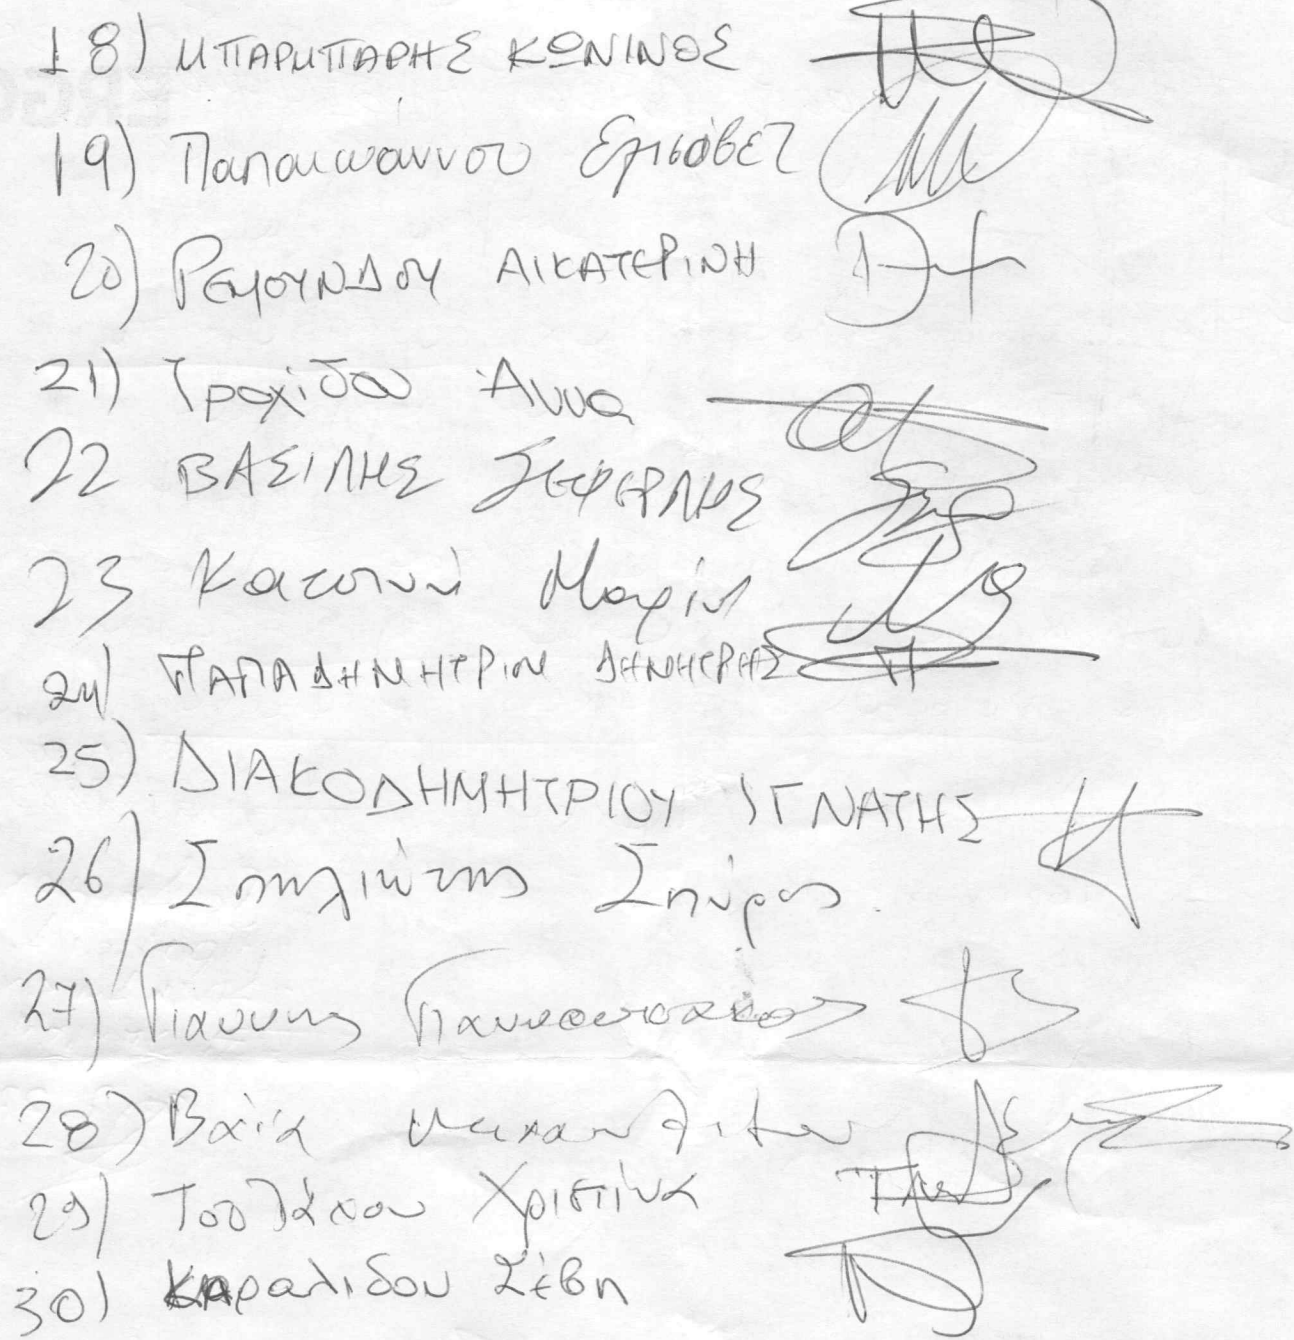 18) ΜΠΑΡΜΠΑΡΗΣ ΚΩΝΙΝΟΣ
19) Παπαιωαννου Ελισάβετ
20) ΡΕΜΟΥΝΔΟΥ ΑΙΚΑΤΕΡΙΝΗ
21) Τροχίδου Άννα
22 ΒΑΣΙΛΗΣ ΣΕΦΕΡΛΗΣ
23 Κατσινή Μαρία
24) ΠΑΠΑΔΗΜΗΤΡΙΟΥ ΔΗΜΗΤΡΗΣ
25) ΔΙΑΚΟΔΗΜΗΤΡΙΟΥ ΙΓΝΑΤΗΣ
26) Σπηλιώτης Σπύρος
27) Γιαννης
28) Βάϊα
29) Τσολάκου Χριστίνα
30) Καραλιδου Σέβη